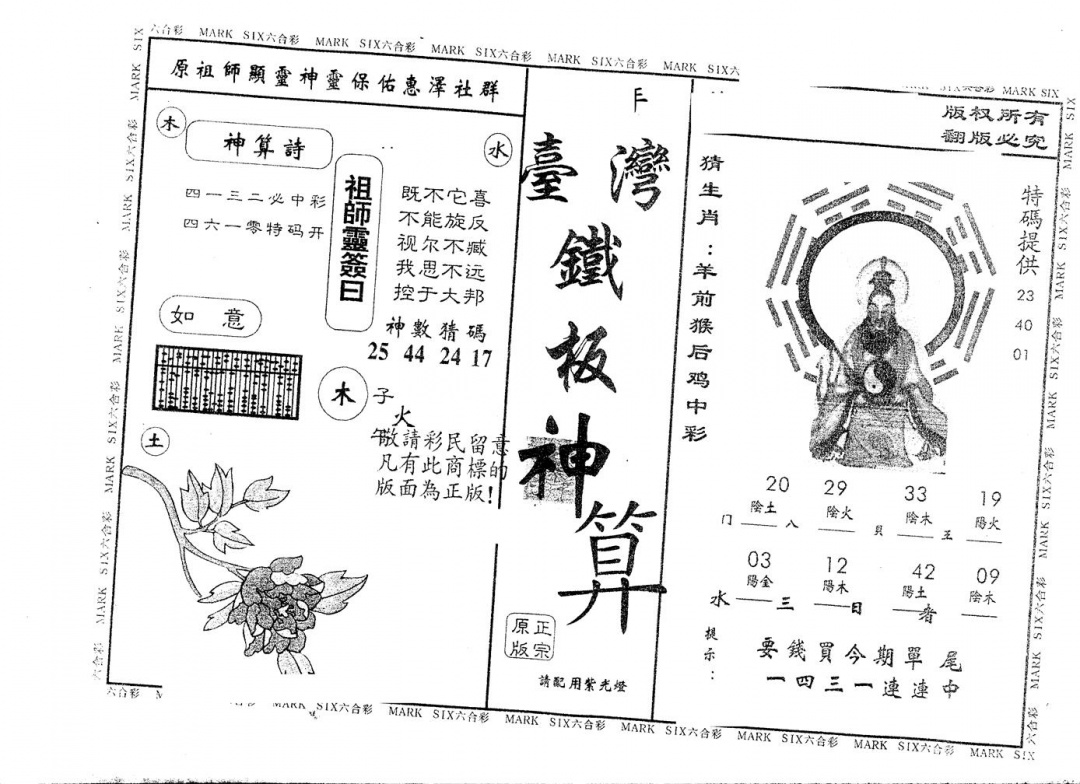 六合彩 MARK SIX六合彩 MARK SIX六合彩 MARK SIX六合彩 MARK SIX六合彩 MARK SIX六
MARK SIX
原祖師顯靈神靈保佑惠澤社群
木
神算詩
水
四一三二必中彩
四六一零特码开
祖師靈簽曰
既不它喜
不能旋反
视尔不臧
我思不远
控于大邦
神數猜碼
25 44 24 17
如意
木
子
火
午
敬請彩民留意
凡有此商標的
版面為正版!
土
臺灣
鐵
板
神
算
正宗
原版
請配用紫光燈
版权所有
翻版必究
猜生肖:羊前猴后鸡中彩
特码提供
23
40
01
20 29 33 19
陰土 陰火 陰木 陽火
门 八 貝 五
03 12 42 09
陽金 陽木 陽土 陰木
水 三 日 者
提示:
要錢買今期單尾
一四三一連連中
六合彩
SIX六合彩 MARK SIX六合彩 MARK SIX六合彩 MARK SIX六合彩 MARK SIX六合彩 MARK SIX六合彩 MARK SIX